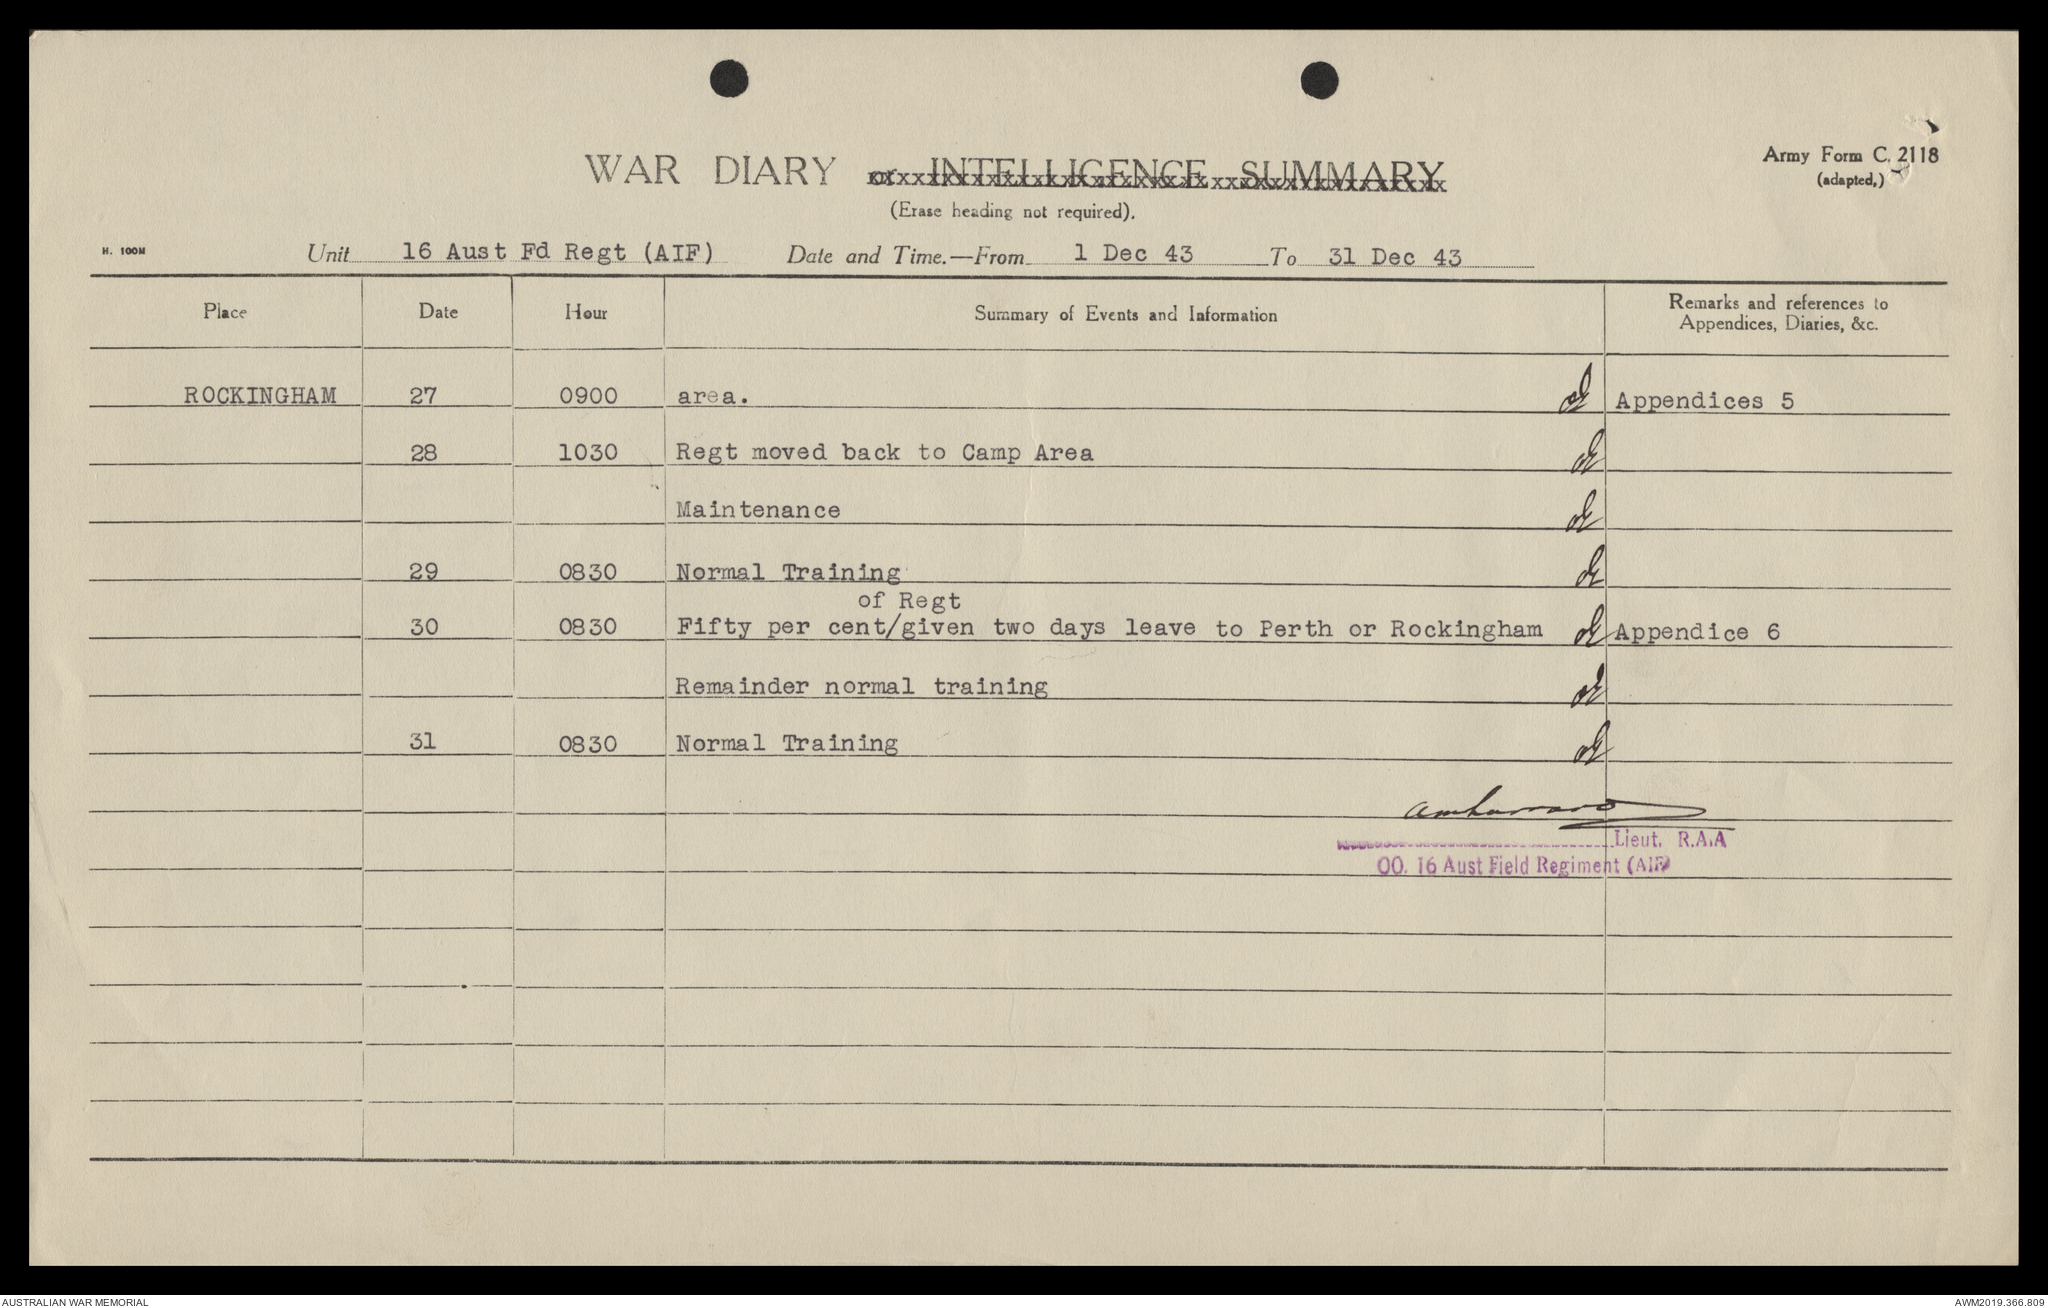 WAR DIARY or INTELLIGENCE SUMMARY
Army Form C. 2118
(adapted.)
(Erase heading not required).
H. 100M
Unit 16 Aust Fd Regt (AIF) Date and Time.—From 1 Dec 43 To 31 Dec 43
Place Date Hour Summary of Events and Information Remarks and references to
Appendices, Diaries, &c.
ROCKINGHAM 27 0900 area. Appendices 5
28 1030 Regt moved back to Camp Area
Maintenance
29 0830 Normal Training
of Regt
30 0830 Fifty per cent/given two days leave to Perth or Rockingham Appendice 6
Remainder normal training
31 0830 Normal Training
Lieut. R.A.A
OO. 16 Aust Field Regiment (AIF)
AUSTRALIAN WAR MEMORIAL AWM2019.366.809